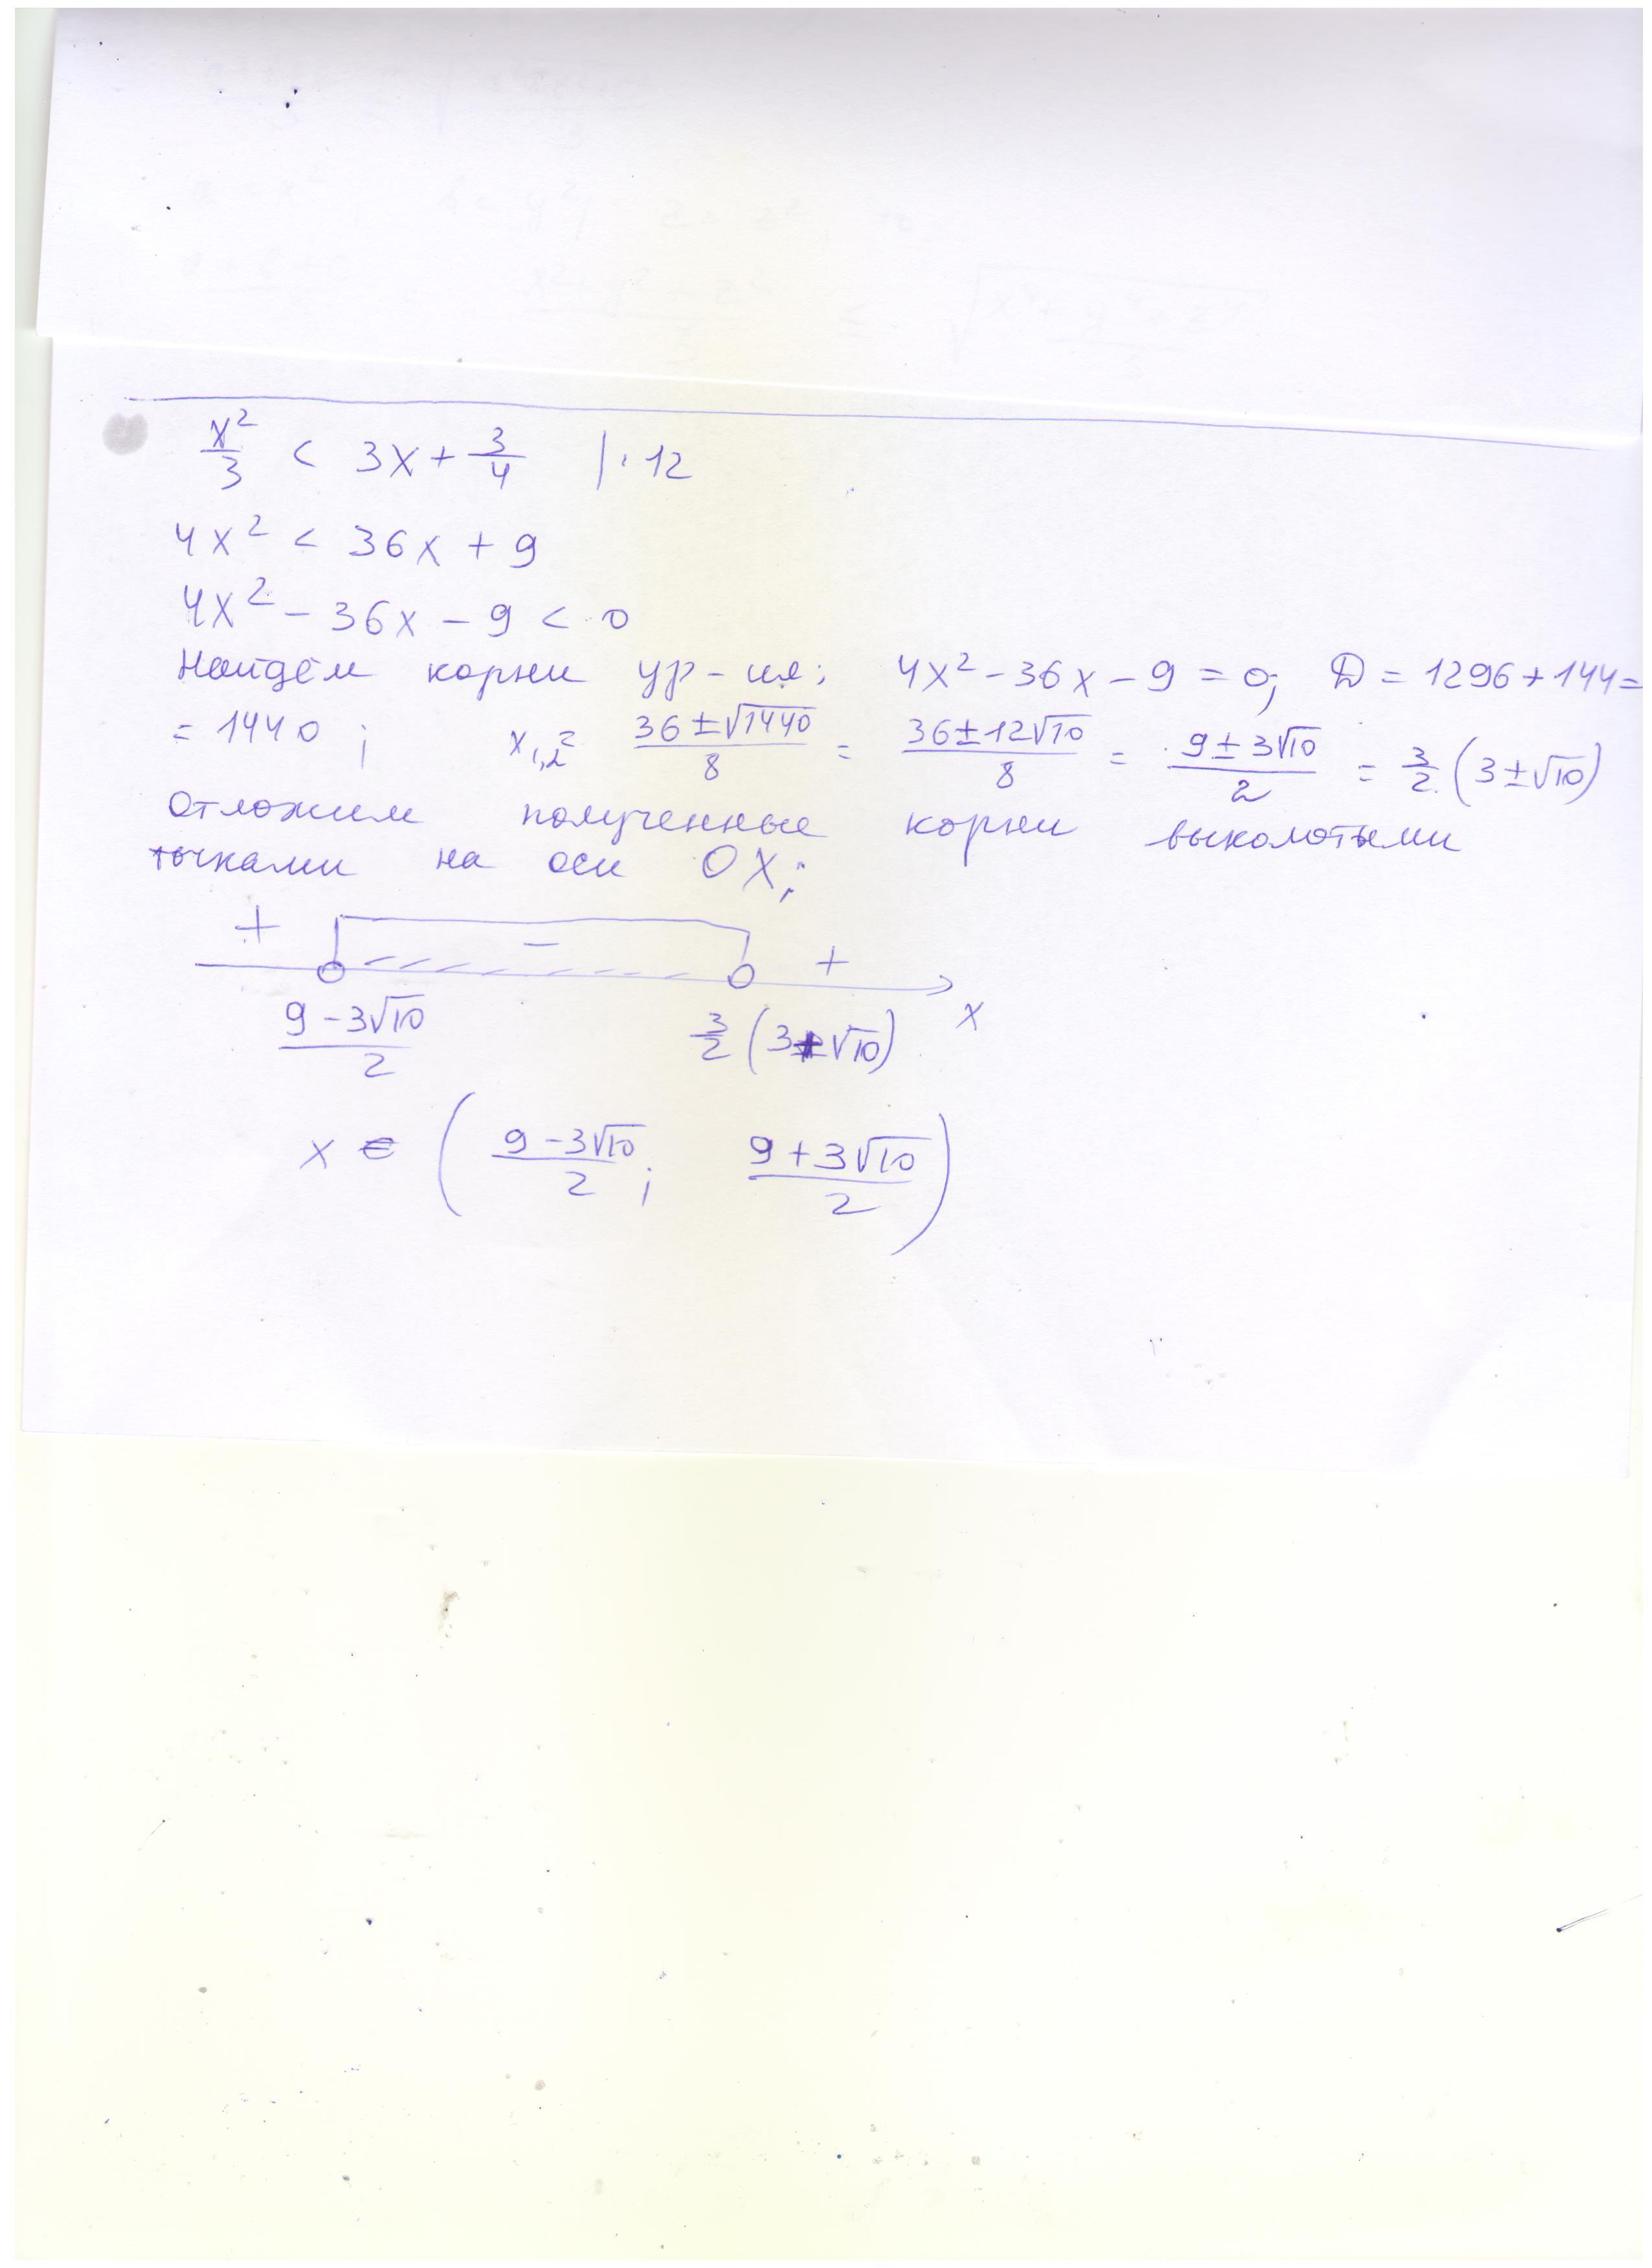 x²/3 < 3x + 3/4 | · 12
4x² < 36x + 9
4x² - 36x - 9 < 0
Найдём корни ур-ия: 4x² - 36x - 9 = 0; D = 1296 + 144 =
= 1440 ; x₁,₂ = (36 ± √1440)/8 = (36 ± 12√10)/8 = (9 ± 3√10)/2 = 3/2 (3 ± √10)
Отложим полученные корни выколотыми
точками на оси OX;
+ - +
(9 - 3√10)/2 3/2 (3 + √10) x
x ∈ ( (9 - 3√10)/2 ; (9 + 3√10)/2 )